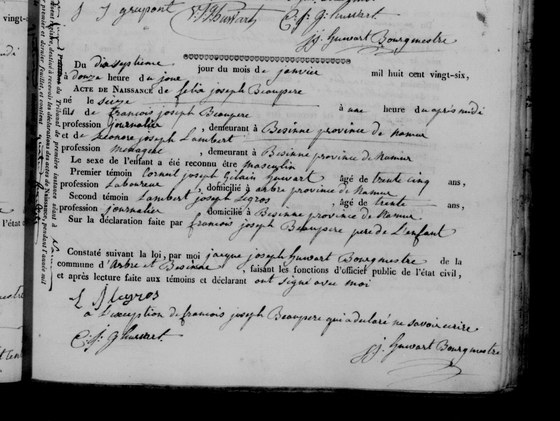 J J grapont
jj. huwart Bourgmestre
Du dix septieme jour du mois de janvier mil huit cent vingt-six,
à douze heure du jour
ACTE DE NAISSANCE de felix joseph Beaupere
né le seize à une heure du apres midi
fils de françois joseph Beaupere
profession journalier , demeurant à Besinne province de namur
et de Leonore joseph Lambert
profession menagere , demeurant à Besinne province de Namur
Le sexe de l'enfant a été reconnu être masculin
Premier témoin Cornil joseph Gilain huwart âgé de trente cinq ans,
profession Laboureur , domicilié à arbre province de Namur
Second témoin Lambert joseph Legros âgé de trente ans,
profession journalier , domicilié à Besinne province de Namur
Sur la déclaration faite par françois joseph Beaupere pere de L'enfant
Constaté suivant la loi, par moi jacque joseph huwart Bourgmestre de la
commune d'Arbre et Besinne faisant les fonctions d'officier public de l'état civil,
et après lecture faite aux témoins et déclarant ont signé avec moi
L J Legros
a L'exception de francois joseph Beaupere qui a declaré ne savoir ecrire
C. j. g huwart
jj. huwart Bourgmestre
vingt-
l'état